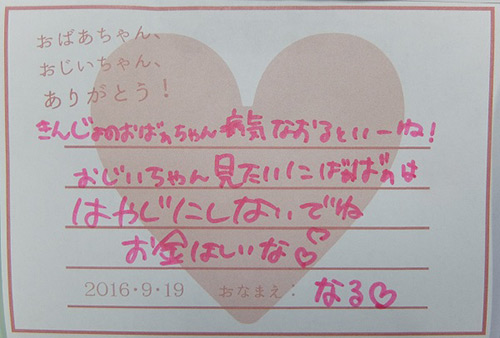 おばあちゃん、
おじいちゃん、
ありがとう!
きんじょのおばあちゃん病気なおるといーね!
おじいちゃん見たいにばぁばぁは
はやじにしないでね
お金ほしいな♡
2016・9・19 おなまえ: なる♡